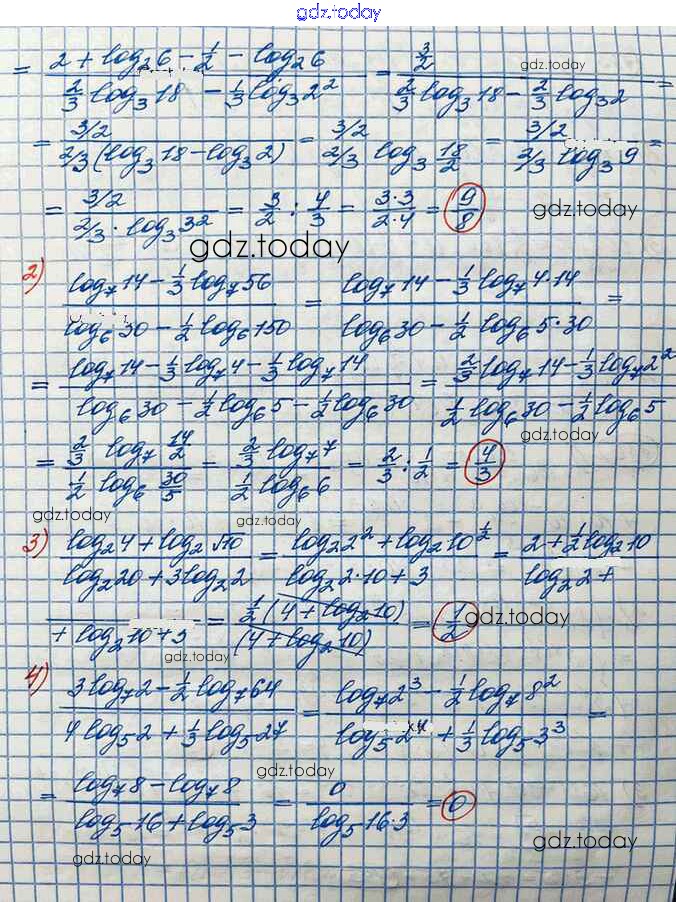 gdz.today
= (2 + log₂6 − 1/2 − log₂6)/(2/3 log₃18 − 1/3 log₃2²) = (3/2)/(2/3 log₃18 − 2/3 log₃2) =
gdz.today
= (3/2)/(2/3(log₃18 − log₃2)) = (3/2)/(2/3 log₃ 18/2) = (3/2)/(2/3 log₃9) =
= (3/2)/(2/3 · log₃3²) = 3/2 : 4/3 = (3·3)/(2·4) = 9/8
gdz.today
gdz.today
2) (log₇14 − 1/3 log₇56)/(log₆30 − 1/2 log₆150) = (log₇14 − 1/3 log₇4·14)/(log₆30 − 1/2 log₆5·30) =
= (log₇14 − 1/3 log₇4 − 1/3 log₇14)/(log₆30 − 1/2 log₆5 − 1/2 log₆30) = (2/3 log₇14 − 1/3 log₇2²)/(1/2 log₆30 − 1/2 log₆5)
= (2/3 log₇ 14/2)/(1/2 log₆ 30/5) = (2/3 log₇7)/(1/2 log₆6) = 2/3 : 1/2 = 4/3
gdz.today
gdz.today
gdz.today
3) (log₂4 + log₂√10)/(log₂20 + 3log₂2) = (log₂2² + log₂10^(1/2))/(log₂2·10 + 3) = (2 + 1/2 log₂10)/(log₂2 +
+ log₂10 + 3) = (1/2(4 + log₂10))/((4 + log₂10)) = 1/2
gdz.today
gdz.today
4) (3log₇2 − 1/2 log₇64)/(4log₅2 + 1/3 log₅27) = (log₇2³ − 1/2 log₇8²)/(log₅2⁴ + 1/3 log₅3³) =
gdz.today
= (log₇8 − log₇8)/(log₅16 + log₅3) = 0/(log₅16·3) = 0
gdz.today
gdz.today